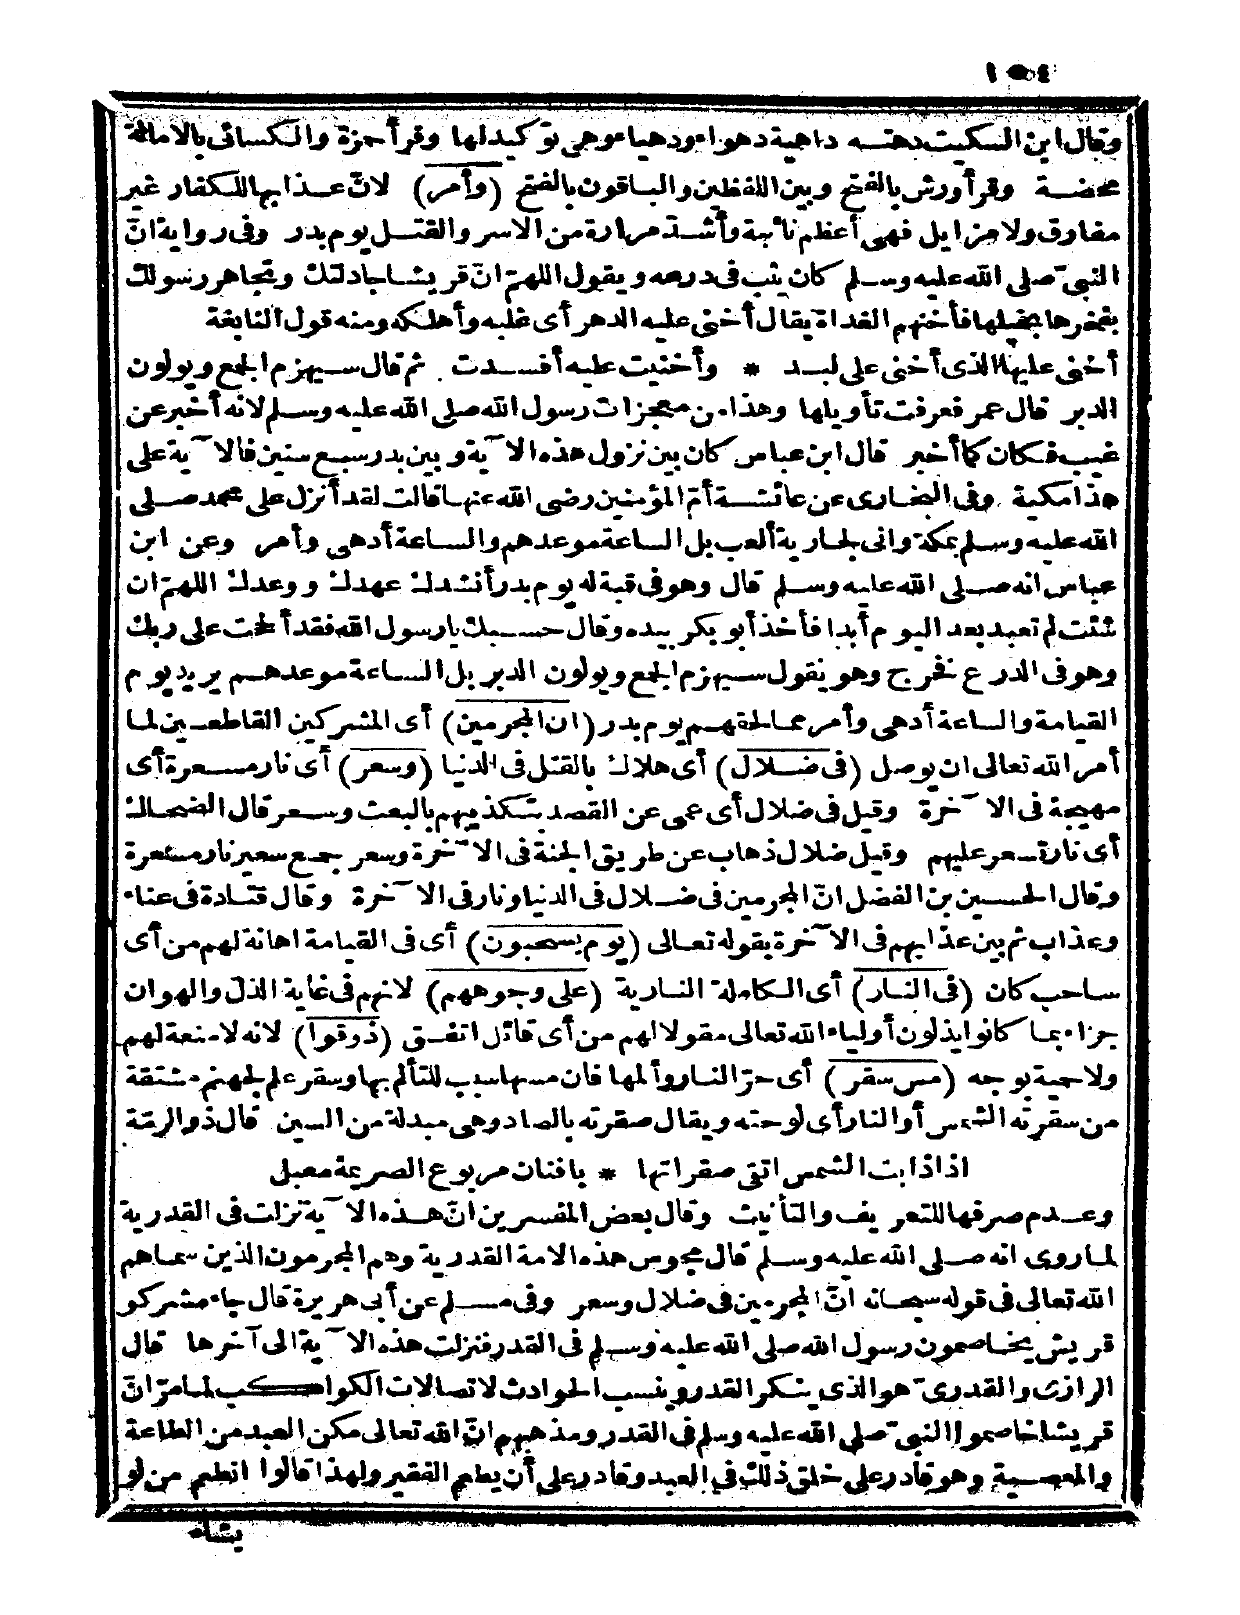 ١٥٤
وقال ابن السكيت دهته داهية دهواء ودهياء وهى توكيد لها وقرأ حمزة والكسائى بالامالة
محضة وقرأ ورش بالفتح وبين اللفظين والباقون بالفتح (وأمر) لانّ عذابها للكفار غير
مفارق ولا مزايل فهى أعظم نائبة وأشدّ مرارة من الاسر والقتل يوم بدر وفى رواية انّ
النبىّ صلى الله عليه وسلم كان يثب فى درعه ويقول اللهمّ انّ قريشا جادلتك وتجاهر رسولك
بفخرها بخيلها فأخنهم الغداة يقال أخنى عليه الدهر أى غلبه وأهلكه ومنه قول النابغة
أخنى عليها الذى أخنى على لبد * وأخنيت عليه أفسدت ثم قال سيهزم الجمع ويولون
الدبر قال عمر فعرفت تأويلها وهذا من معجزات رسول الله صلى الله عليه وسلم لانه أخبر عن
غيب فكان كما أخبر قال ابن عباس كان بين نزول هذه الآية وبين بدر سبع سنين فالآية على
هذا مكية وفى البخارى عن عائشة أمّ المؤمنين رضى الله عنها قالت لقد أنزل على محمد صلى
الله عليه وسلم بمكة وانى لجارية ألعب بل الساعة موعدهم والساعة أدهى وأمر وعن ابن
عباس انه صلى الله عليه وسلم قال وهو فى قبة له يوم بدر أنشدك عهدك ووعدك اللهمّ ان
شئت لم تعبد بعد اليوم أبدا فأخذ أبو بكر بيده وقال حسبك يا رسول الله فقد ألححت على ربك
وهو فى الدرع فخرج وهو يقول سيهزم الجمع ويولون الدبر بل الساعة موعدهم يريد يوم
القيامة والساعة أدهى وأمر مما لحقهم يوم بدر (ان المجرمين) أى المشركين القاطعين لما
أمر الله تعالى ان يوصل (فى ضلال) أى هلاك بالقتل فى الدنيا (وسعر) أى نار مسعرة أى
مهيجة فى الآخرة وقيل فى ضلال أى عمى عن القصد بتكذيبهم بالبعث وسعر قال الضحاك
أى نار تسعر عليهم وقيل ضلال ذهاب عن طريق الجنة فى الآخرة وسعر جمع سعير نار مستعرة
وقال الحسين بن الفضل انّ المجرمين فى ضلال فى الدنيا ونار فى الآخرة وقال قتادة فى عناء
وعذاب ثم بين عذابهم فى الآخرة بقوله تعالى (يوم يسحبون) أى فى القيامة اهانة لهم من أى
ساحب كان (فى النار) أى الكاملة النارية (على وجوههم) لانهم فى غاية الذل والهوان
جزاء بما كانوا يذلون أولياء الله تعالى مقولا لهم من أى قائل اتفق (ذوقوا) لانه لا منعة لهم
ولا حمية بوجه (مس سقر) أى حرّ النار وألمها فان مسها سبب للتألم بها وسقر علم لجهنم مشتقة
من سقرته الشمس أو النار أى لوحته ويقال صقرته بالصاد وهى مبدلة من السين قال ذو الرمّة
اذا ذابت الشمس اتقى صقراتها * بافنان مربوع الصريمة معبل
وعدم صرفها للتعريف والتأنيث وقال بعض المفسرين انّ هذه الآية نزلت فى القدرية
لما روى انه صلى الله عليه وسلم قال مجوس هذه الامة القدرية وهم المجرمون الذين سماهم
الله تعالى فى قوله سبحانه انّ المجرمين فى ضلال وسعر وفى مسلم عن أبى هريرة قال جاء مشركو
قريش يخاصمون رسول الله صلى الله عليه وسلم فى القدر فنزلت هذه الآية الى آخرها قال
الرازى والقدرىّ هو الذى ينكر القدر وينسب الحوادث لاتصالات الكواكب لما مرّ انّ
قريشا خاصموا النبىّ صلى الله عليه وسلم فى القدر ومذهبهم انّ الله تعالى مكن العبد من الطاعة
والمعصية وهو قادر على خلق ذلك فى العبد وقادر على أن يطعم الفقير ولهذا قالوا انطعم من لو
يشاء